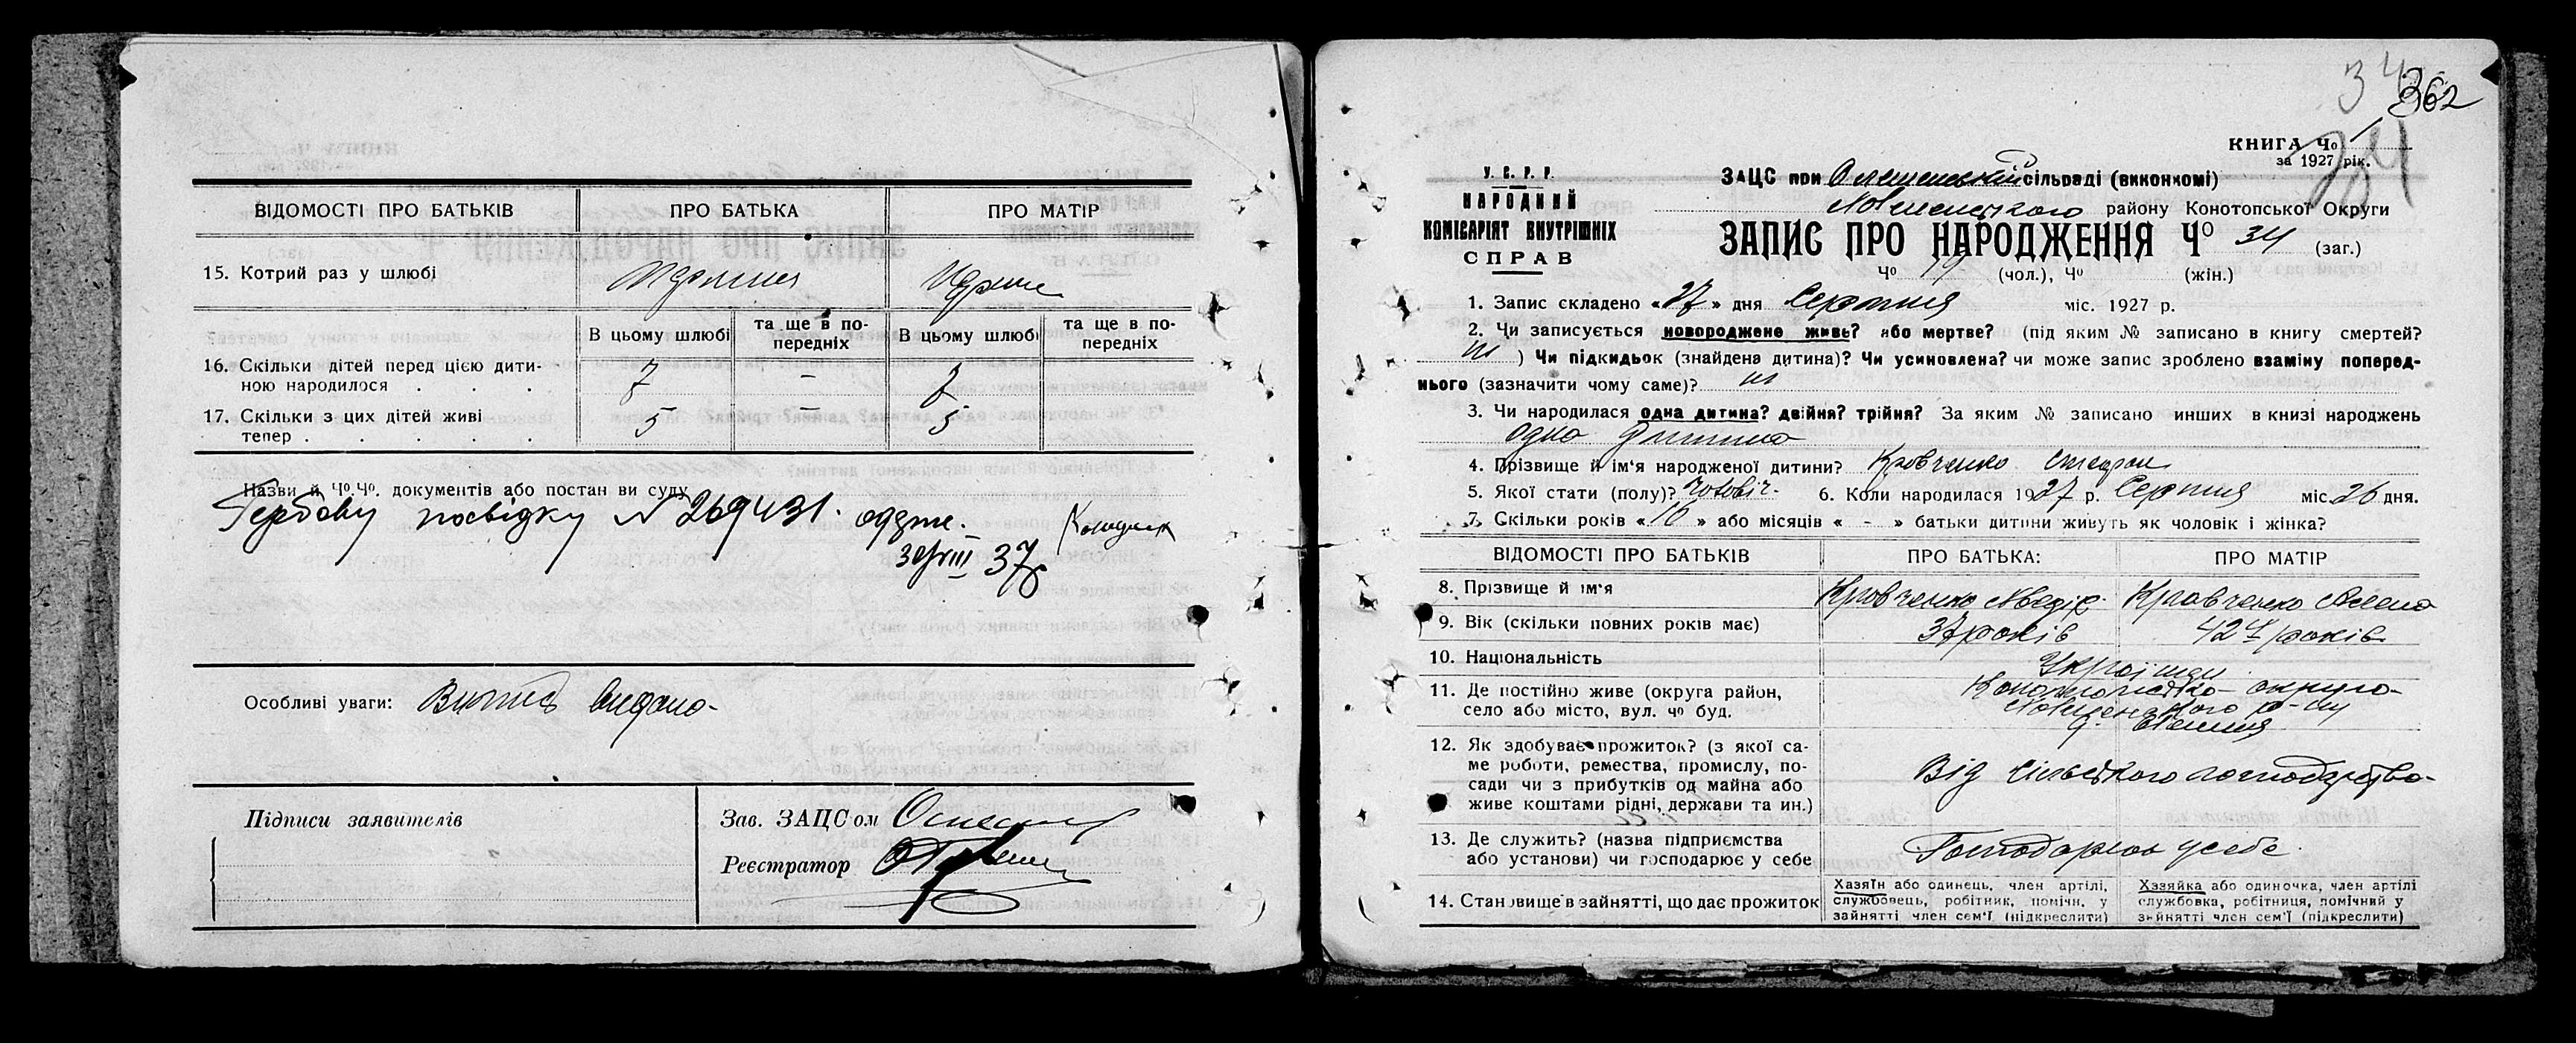 ВІДОМОСТІ ПРО БАТЬКІВ ПРО БАТЬКА ПРО МАТІР
15. Котрий раз у шлюбі
В цьому шлюбі та ще в по-передніх В цьому шлюбі та ще в по-передніх
16. Скільки дітей перед цією дити-
ною народилося . . . 7 – 7
17. Скільки з цих дітей живі
тепер . . . . . 5 – 5
Назви й Чо.Чо. документів або постан ви суду
Гербову посвідку № 269431.
30/VIII 37р
Особливі уваги: Витяг видано
Підписи заявителів
Зав. ЗАЦС ом
Реєстратор
34
362
КНИГА Чо 1
34
за 1927 рік.
У. С. Р. Р.
НАРОДНИЙ
КОМІСАРІЯТ ВНУТРІШНІХ
СПРАВ
ЗАЦС при сільраді (виконкомі)
району Конотопської Округи
ЗАПИС ПРО НАРОДЖЕННЯ Чо 34 (заг.)
Чо 19 (чол.), Чо (жін.)
1. Запис складено «27» дня Серпня міс. 1927 р.
2. Чи записується новороджене живе? або мертве? (під яким № записано в книгу смертей?
ні ) Чи підкидьок (знайдена дитина)? Чи усиновлена? чи може запис зроблено взаміну поперед-
нього (зазначити чому саме)? ні
3. Чи народилася одна дитина? двійня? трійня? За яким № записано инших в книзі народжень
одна дитина
4. Прізвище й ім'я народженої дитини? Кравченко Стефан
5. Якої стати (полу)? чоловіч. 6. Коли народилася 1927 р. Серпня міс. 26 дня.
7. Скільки років «10» або місяців « - » батьки дитини живуть як чоловік і жінка?
ВІДОМОСТІ ПРО БАТЬКІВ ПРО БАТЬКА: ПРО МАТІР
8. Прізвище й ім'я Кравченко Кравченко Олена
9. Вік (скільки повних років має) 37 років 42 років
10. Національність Українці
11. Де постійно живе (округа район, Конотопська округа
село або місто, вул. чо буд.
12. Як здобуває прожиток? (з якої са-
ме роботи, ремества, промислу, по-
сади чи з прибутків од майна або
живе коштами рідні, держави та ин.) Від сільського господарства
13. Де служить? (назва підприємства
або установи) чи господарює у себе Господарює у себе
14. Становище в зайнятті, що дає прожиток
Хазяїн або одинець, член артілі,
службовець, робітник, помічн. у
зайнятті член сем'ї (підкреслити)
Хазяйка або одиночка, член артілі
службовка, робітниця, помічний у
зайнятті член сем'ї (підкреслити)